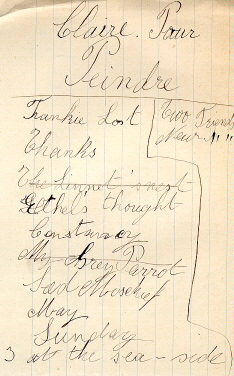 Claire. Pour
Peindre
Frankie Lost
Thanks
The Linnet's nest
Ethel's thought
Constancy
My Grey Parrot
Sad Mischief
May
Sunday
3 at the sea-side
Two Friends
New " "